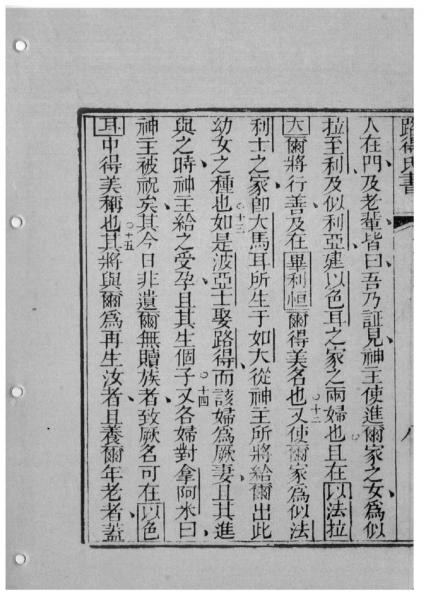 路得氏書 八
人在門及老輩皆曰吾乃証見神主使進爾家之女爲似
拉至利及似利亞建以色耳之家之兩婦也且在以法拉
大爾將行善及在畢利恒爾得美名也○十二又使爾家爲似法
利士之家卽大馬耳所生于如大從神主所將給爾出此
幼女之種也○十三如是波亞士娶路得而該婦爲厥妻且其進
與之時神主給之受孕且其生個子○十四又各婦對拿阿米曰
神主被祝矣其今日非遺爾無贖族者致厥名可在以色
耳中得美稱也○十五其將與爾爲再生汝者且養爾年老者蓋